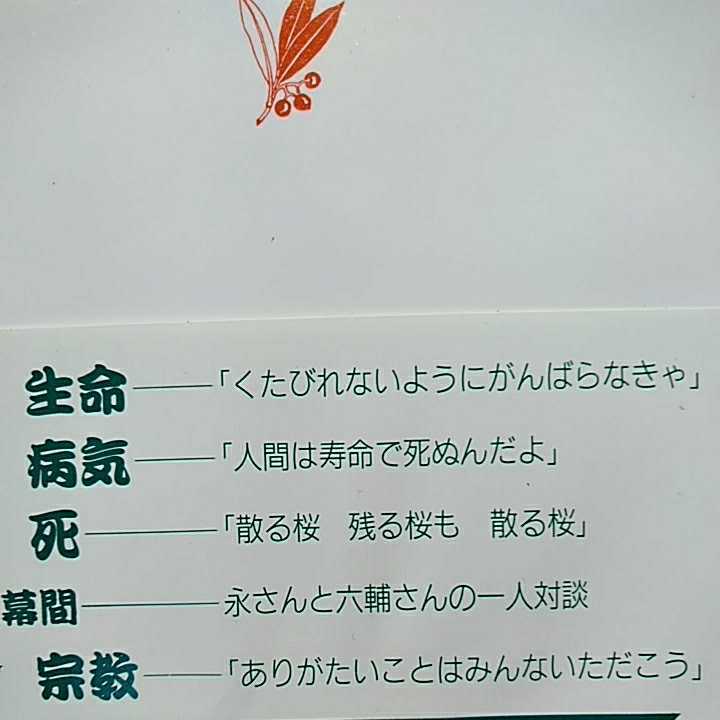 生命――「くたびれないようにがんばらなきゃ」
病気――「人間は寿命で死ぬんだよ」
死――「散る桜　残る桜も　散る桜」
幕間――永さんと六輔さんの一人対談
宗教――「ありがたいことはみんないただこう」